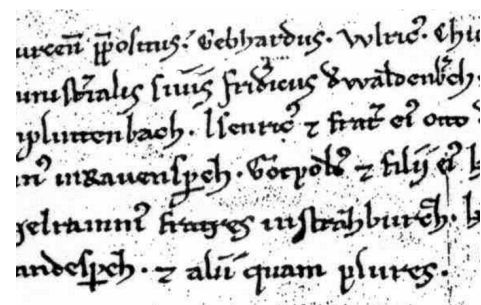 urcen̄ p̄positus. Gebhardus. Wlricꝰ. Chu
unistralis suus fridericus d waldenbch.
pluttenbach. Isenricꝰ ⁊ frat̄ eiꝰ otto d
nꝰ inravensp̄ch. ⁊ filii eiꝰ h
geltramnꝰ frates instrahburch. h
andesp̄ch. ⁊ alii quam plures.